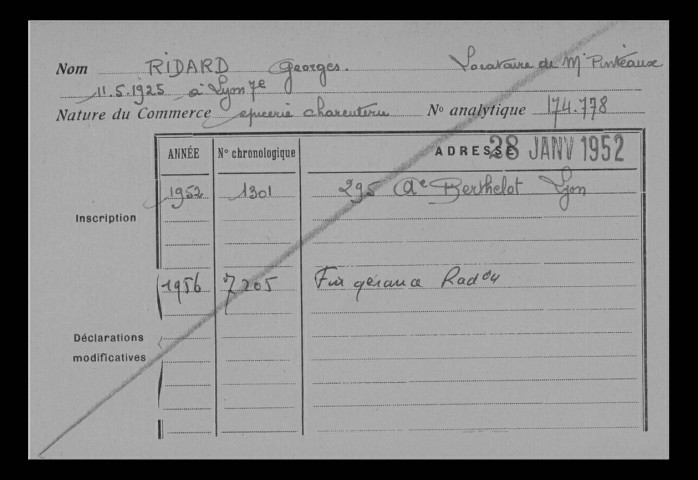 Nom RIDARD Georges. Locataire de Mr Pintéaux
11.5.1925 à Lyon 7e
Nature du Commerce épicerie charcuterie No analytique 174.778
ANNÉE No chronologique ADRESSE 28 JANV 1952
1952 1301 295 Ae Berthelot Lyon
Inscription
1956 7205 Fin gérance Radon
Déclarations
modificatives